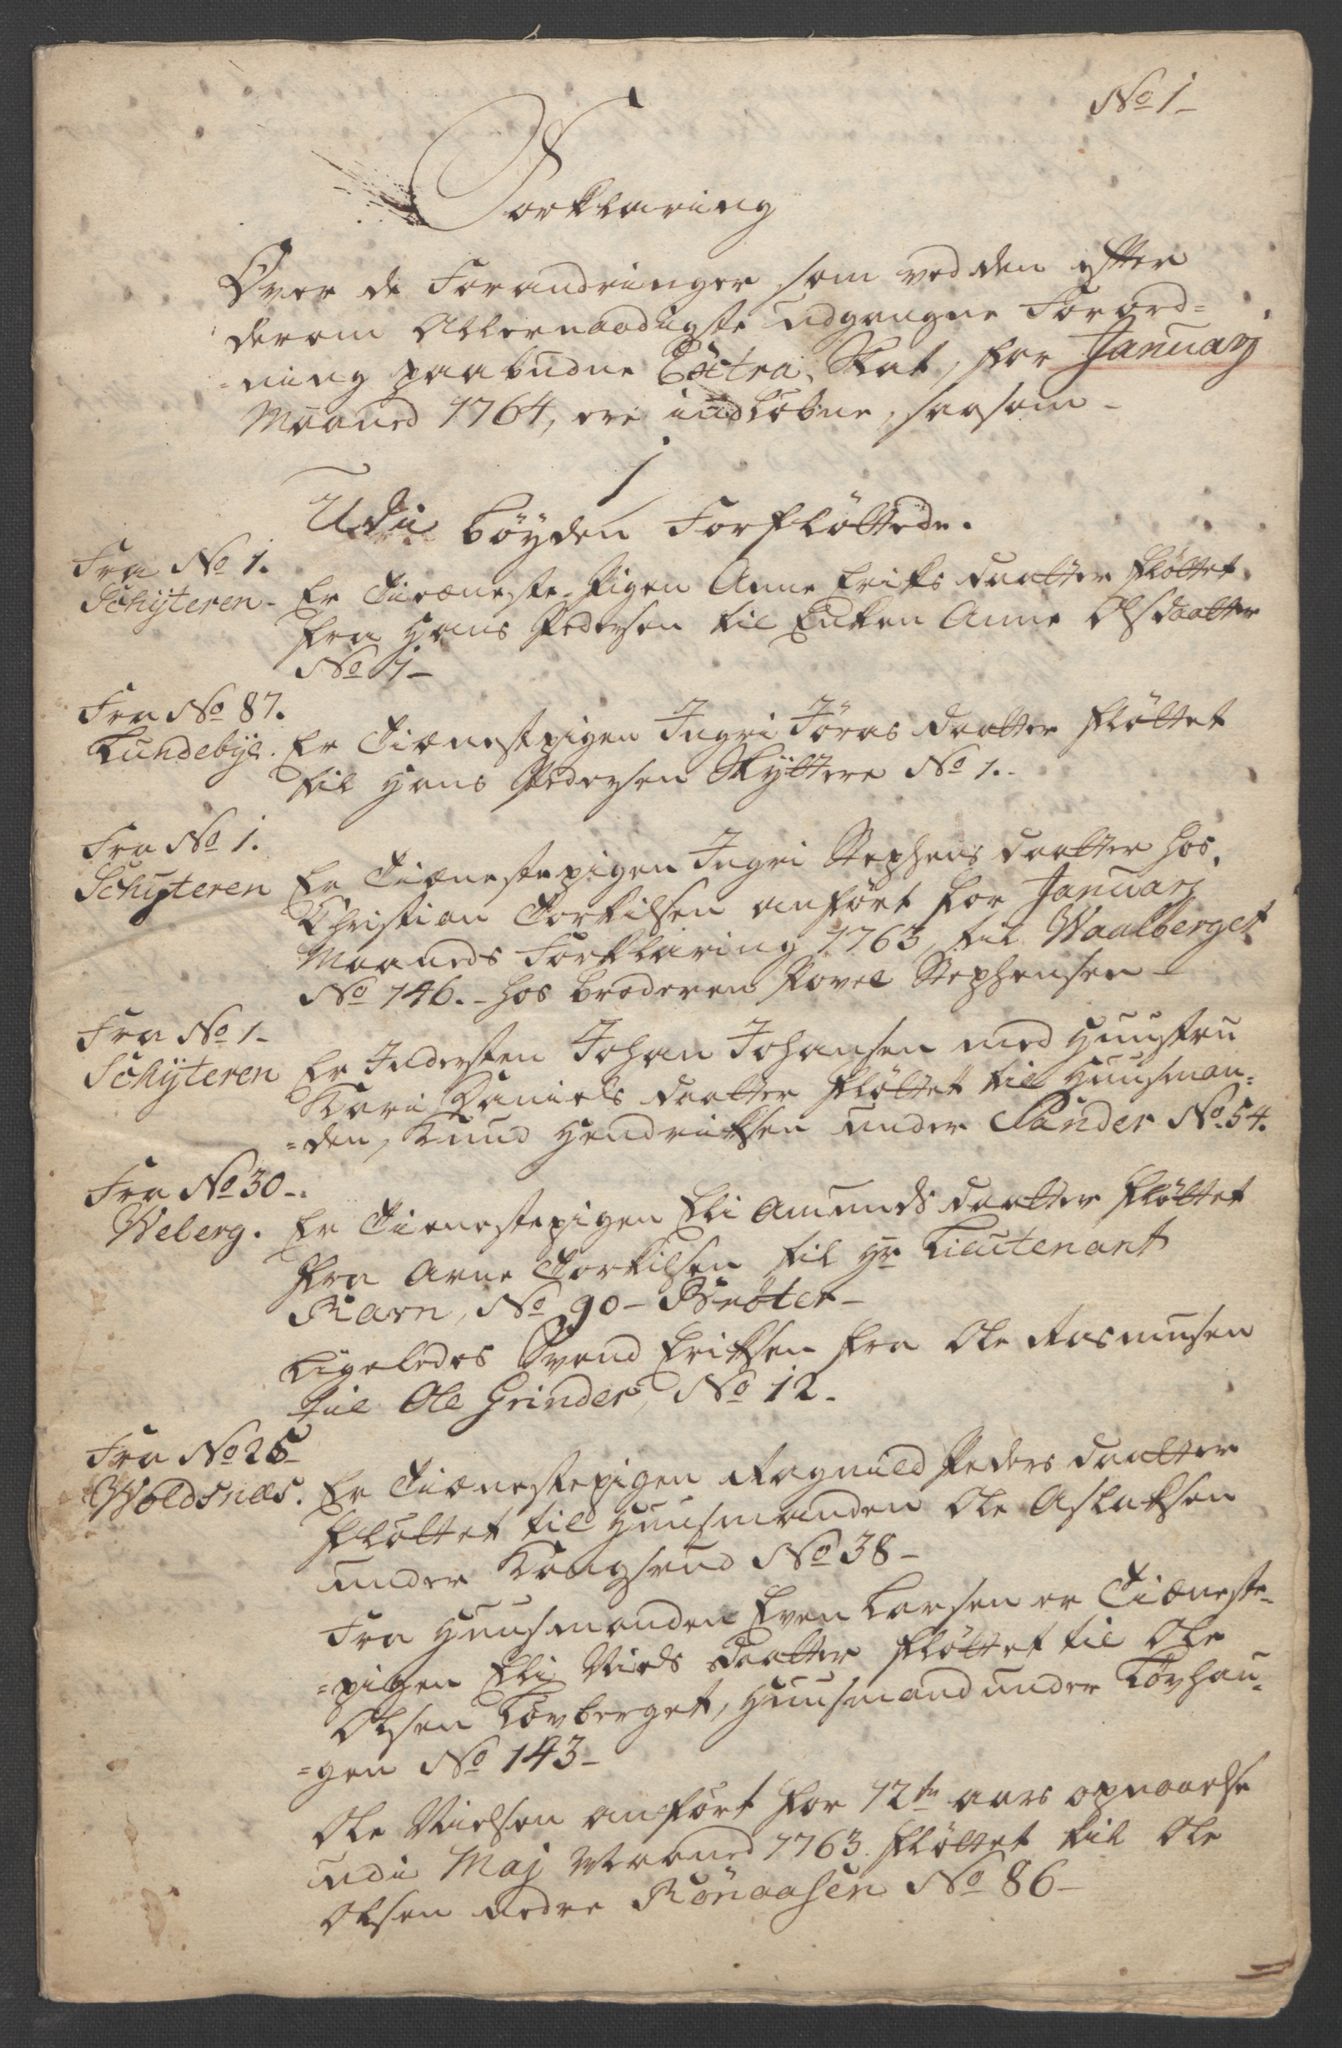 No 1-
Forklaring
Over de Forandringer som ved den efter
derom Allernaadigste udgangne Forord=
=ning paabudne Extra Skat, for Januarj
Maaned 1764, ere indløbne, saasom-
1
Udi böyden Forfløttede.
Fra No 1.
Schÿteren-
Er Tieæneste-Pigen Anne Eriks daatter fløttet
fra Hans Pedersen til Enken Anne Olsdaatter
No 1-
Fra No 87.
Lundebÿe.
Er Tiænestepigen Ingri Jöras daatter fløttet
til Hans Pedersen Skÿttere No 1.-
Fra No 1.
Schÿteren
Er Tiænestepigen Ingri Stephens daatter hos
Christian Torkilsen anført for Januarj
Maaneds Forklaring 1763, til Waalberget
No 146.- hos broderen Povel Stephensen-
Fra No 1-
Schÿteren
Er Indersten Johan Johansen med Huustru
Kari Daniels daatter fløttet til Huusman=
=den, Knud Hendriksen under Sander No 54.
Fra No 30-.
Weberg.
Er Tienestepigen Eli Amunds daatter fløttet
fra Arne Torkilsen til Hr Lieutenant
Ravn, No 90- Brøter-
Ligeledes Svend Eriksen fra Ole Rasmusen
til Ole Grinder, No 12-
Fra No 25-
Woldsnæs.
Er Tiænestepigen Ragnild Peders daatter
fløttet til Huusmanden Ole Aslaksen
under Kongsrud No 38-
Fra Huusmanden Even Larsen er Tiæneste=
=pigen Eli Niels daatter fløttet til Ole
Olsen Løvberget, Huusmand under Løvhau=
=gen No 143-
Ole Nielsen anført for 12te aars opnaaelse
udi Maj Maaned 1763. fløttet til Ole
Olsen nedre Rönaasen No 86-